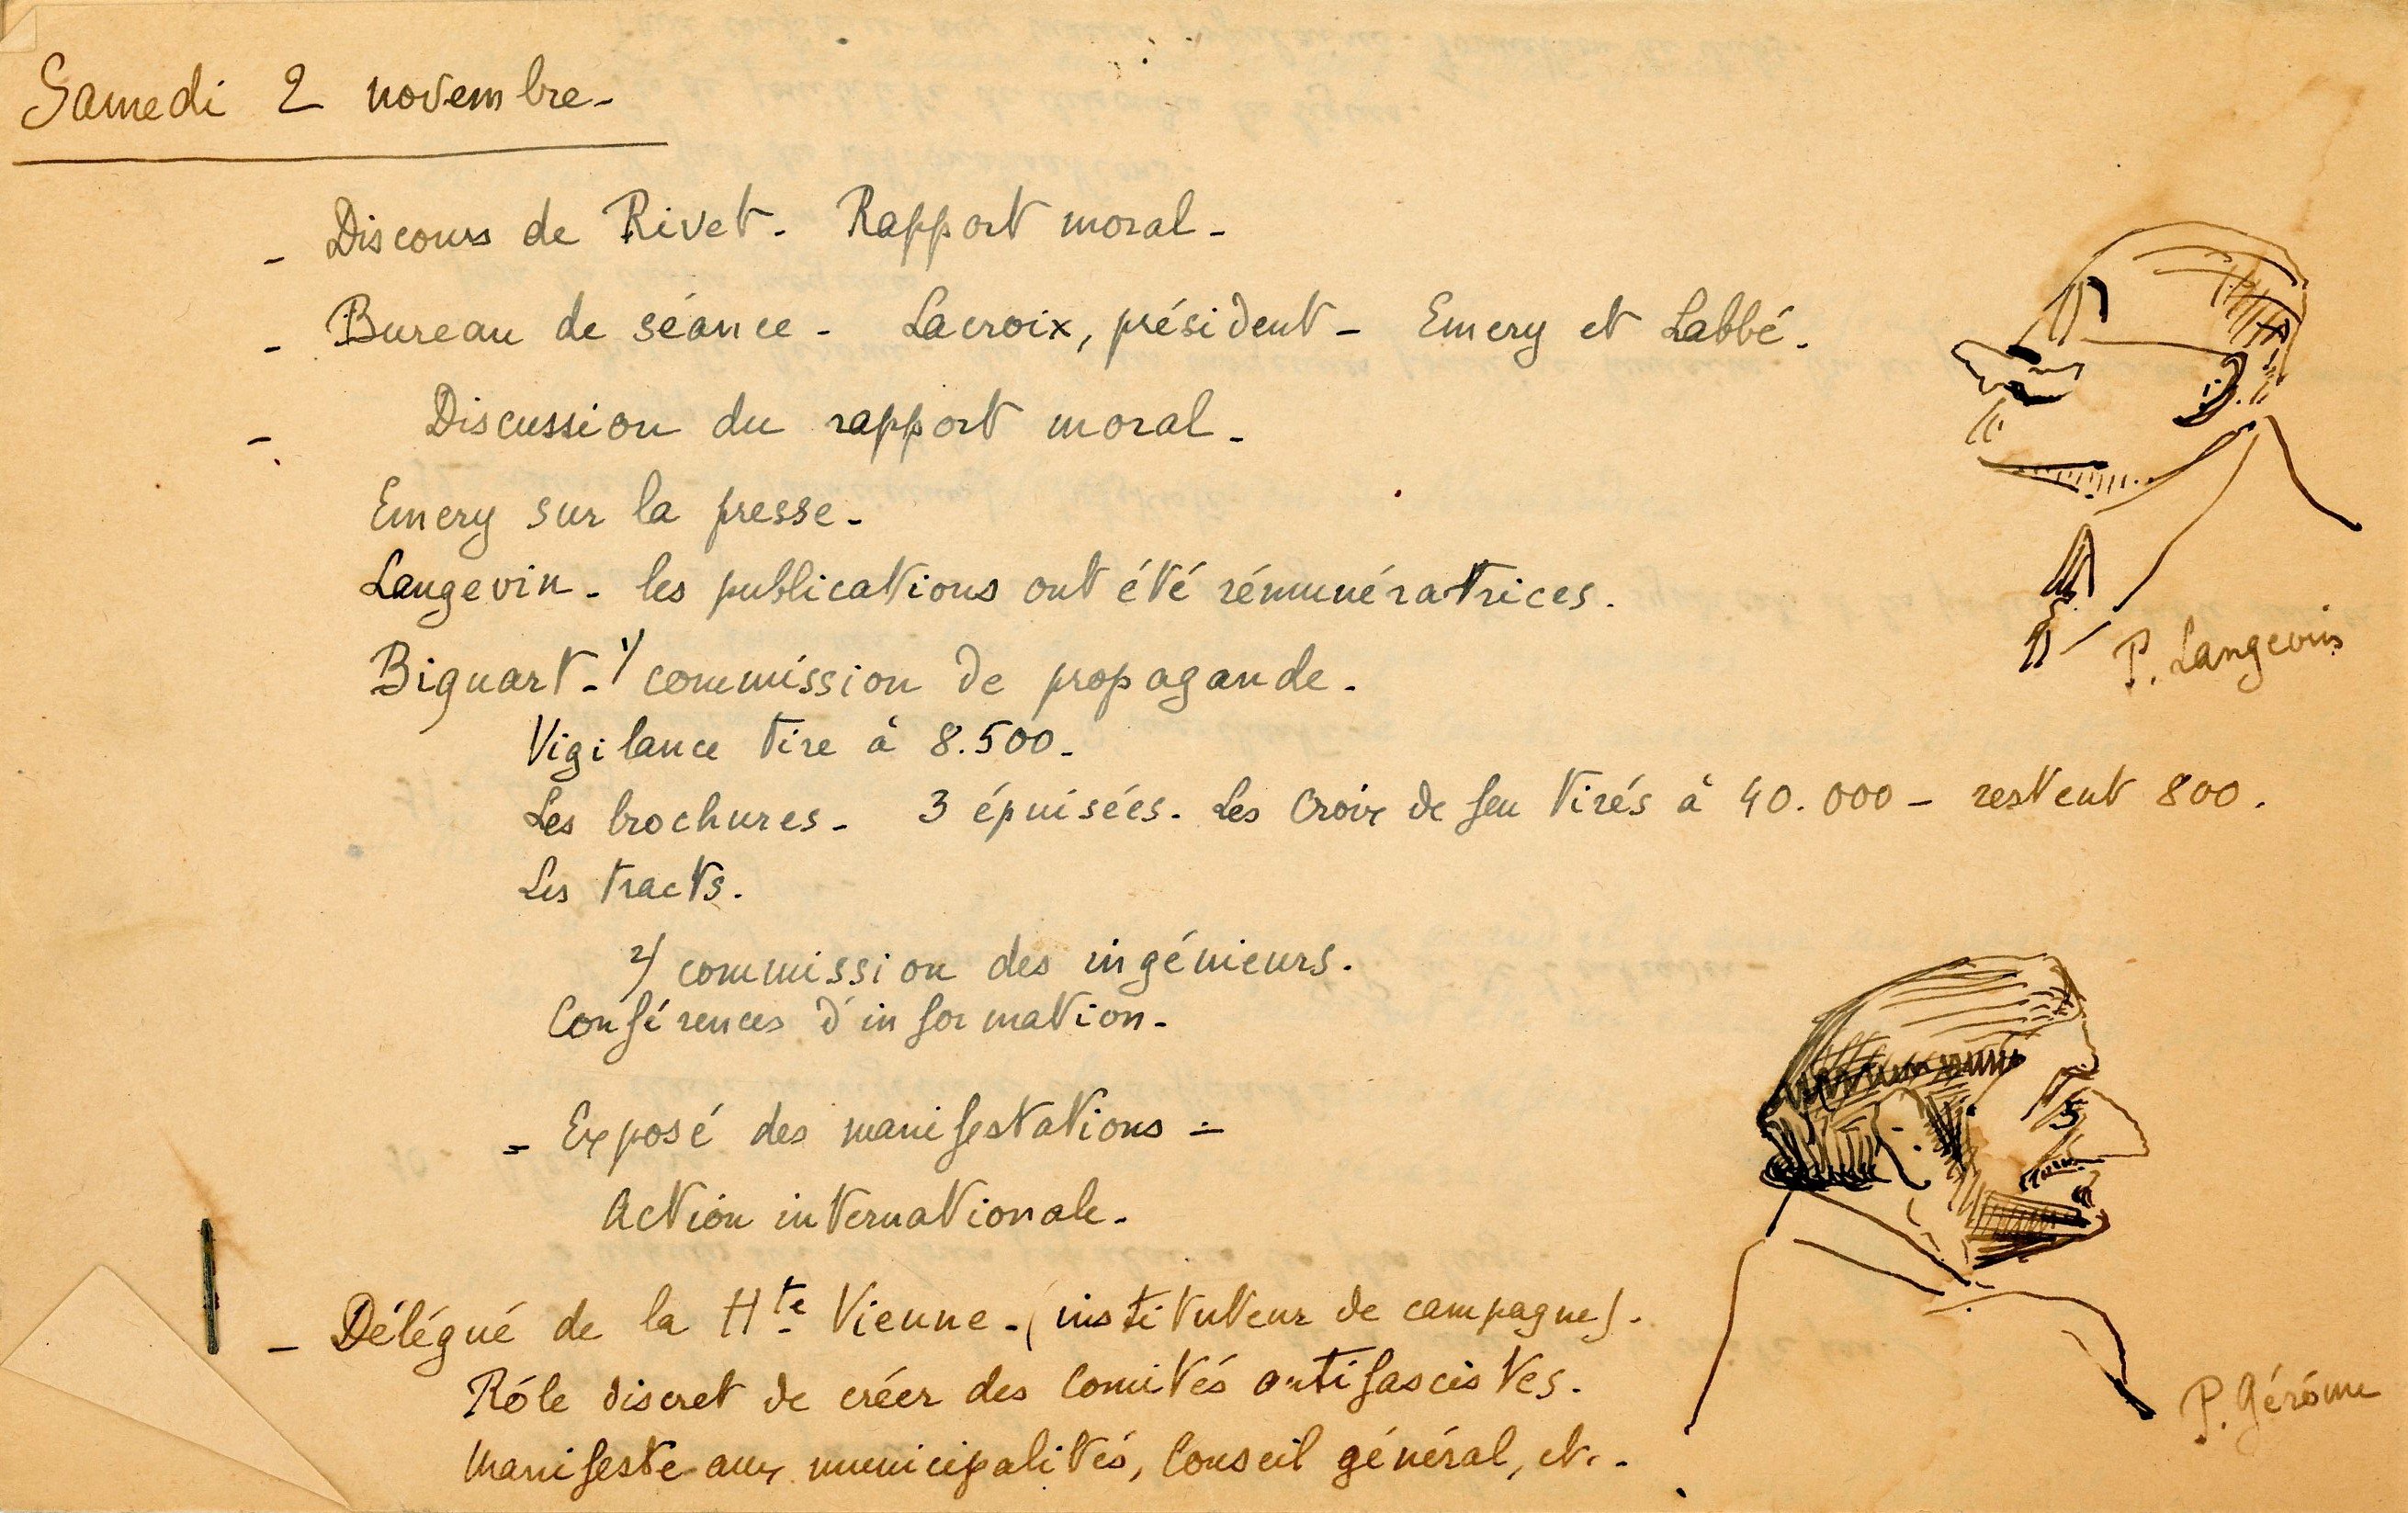 Samedi 2 novembre -
- Discours de Rivet - Rapport moral -
- Bureau de séance - Lacroix, président - Emery et Labbé.
- Discussion du rapport moral -
Emery sur la presse -
Langevin - les publications ont été rémunératrices.
P. Langevin
Biquart - 1/ commission de propagande -
Vigilance tire à 8.500 -
Les brochures - 3 épuisées. Les Croix de feu tirés à 40.000 - restent 800.
Les tracts.
2/ commission des ingénieurs.
Conférences d'information -
- Exposé des manifestations =
Action internationale -
- Délégué de la Hte Vienne - (instituteur de campagne).
Rôle discret de créer des Comités antifascistes.
P. Gérôme
Manifeste aux municipalités, Conseil général, etc.